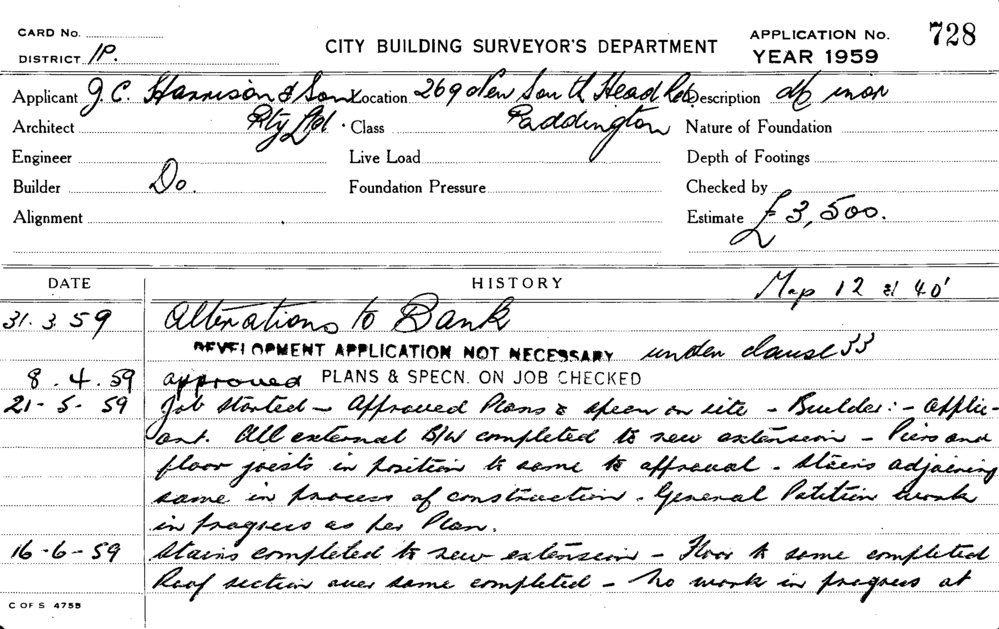 CARD No.
DISTRICT IP.
CITY BUILDING SURVEYOR'S DEPARTMENT
APPLICATION No. 728
YEAR 1959
Applicant J. C. Harrison & Son Pty Ltd.
Location 269 New South Head Rd. Paddington
Description
Architect
Class
Nature of Foundation
Engineer
Live Load
Depth of Footings
Builder Do.
Foundation Pressure
Checked by
Alignment
Estimate £3,500.
DATE
HISTORY
Map 12 40'
31. 3. 59 Alterations to Bank
DEVELOPMENT APPLICATION NOT NECESSARY under clause 33
8. 4. 59 approved PLANS & SPECN. ON JOB CHECKED
21-5-59 Job started - Approved Plans & specn on site - Builder:- Applic-
ant. All external B/W completed to new extension - Piers and
floor joists in position to same to approval - Stairs adjoining
same in process of construction - General Patition work
in progress as per Plan.
16-6-59 Stairs completed to new extension - Floor to same completed
Roof section over same completed - No work in progress at
C OF S 4755